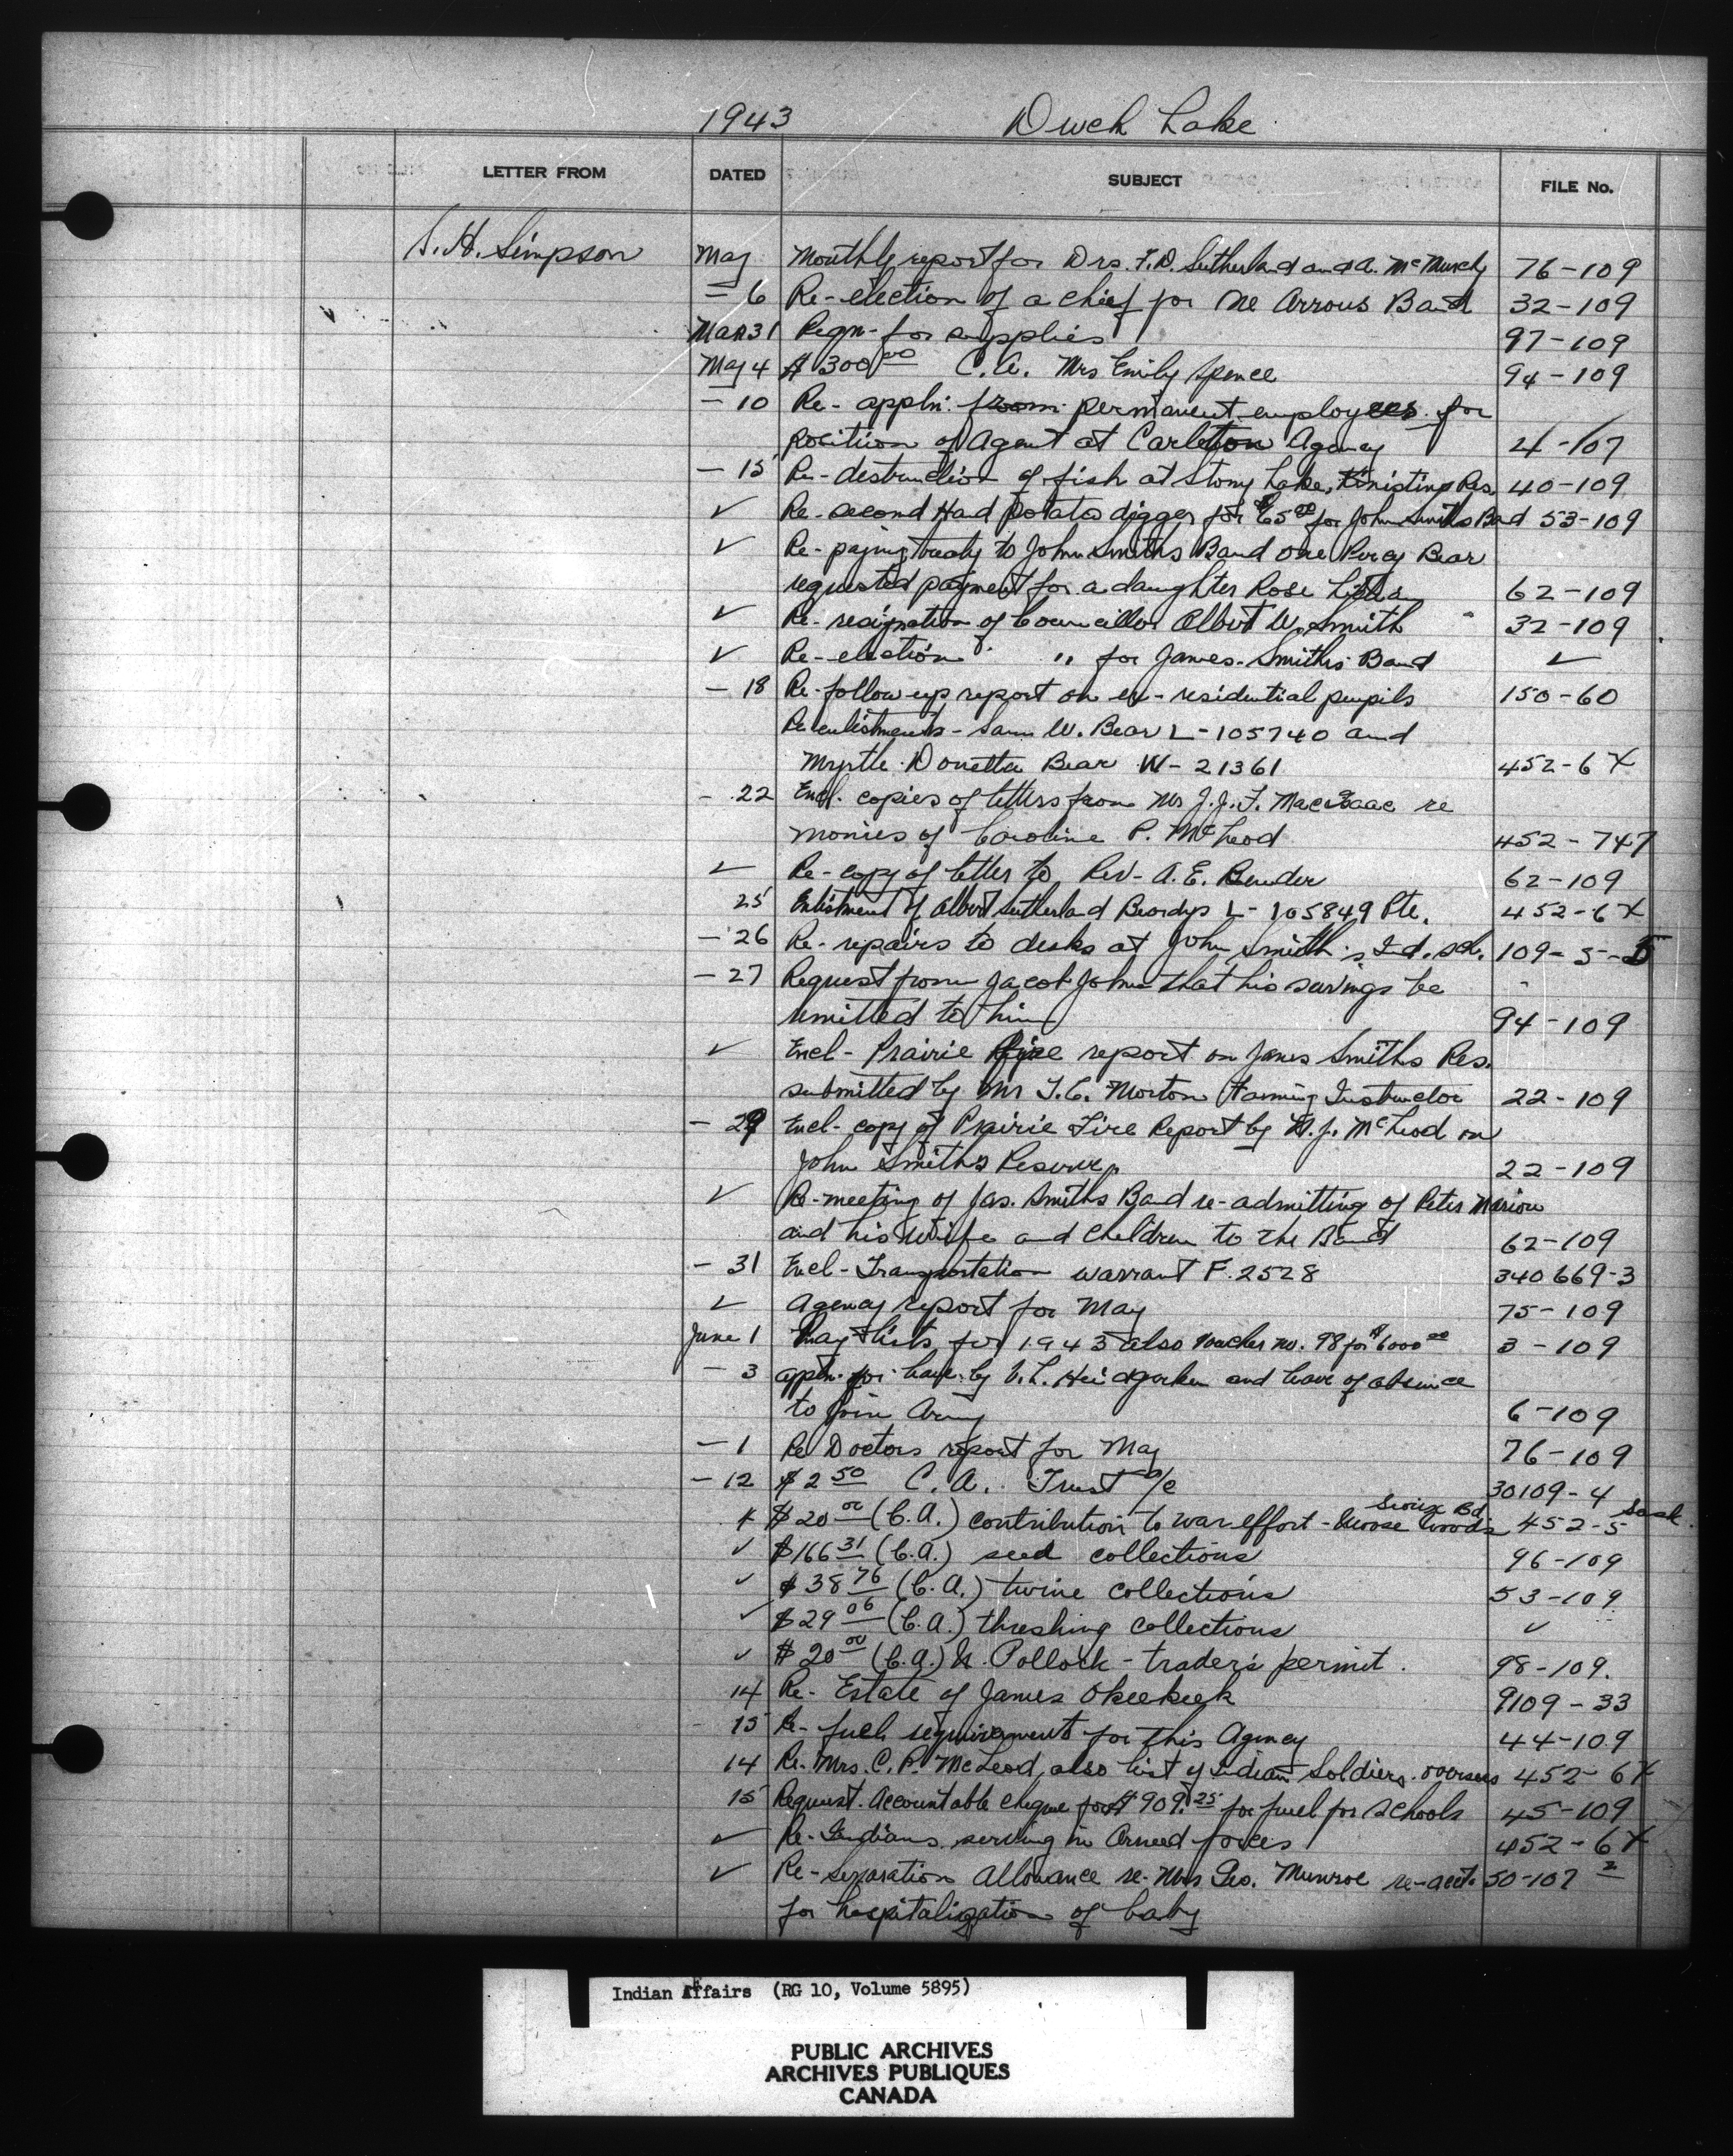 1943 Duck Lake
LETTER FROM DATED SUBJECT FILE No.
S. H. Simpson May Monthly report for Drs. F.D. Sutherland and A. McMurchy 76-109
- 6 Re-election of a chief for One Arrows Band 32-109
Mar 31 Reqn- for supplies 97-109
May 4 $300.00 C.A. Mrs Emily Spence 94-109
- 10 Re- appln. from permanent employees for
position of Agent at Carleton Agency 4-107
- 15 Re-destruction of fish at Stony Lake, Kinistino Res. 40-109
✓ Re-second Hand potato digger for $65.00 for John Smiths Band 53-109
✓ Re-paying treaty to John Smiths Band one Percy Bear
requested payment for a daughter Rose 62-109
✓ Re-resignation of Councillor Albert W. Smith 32-109
✓ Re-election " for James Smiths Band ✓
- 18 Re-follow up report on ex-residential pupils 150-60
Re enlistments - Sam W. Bear L-105740 and
Myrtle Donetta Bear W-21361 452-6X
- 22 Encl. copies of letters from Mr J.J.F. MacIsaac re
monies of Caroline P. McLeod 452-747
✓ Re-copy of letter to Rev- A.E. Bender 62-109
25 Enlistment of Albert Sutherland Beardys L-105849 Pte. 452-6X
- 26 Re-repairs to desks at John Smith's Ind. sch. 109-5-5
- 27 Request from Jacob Johns that his savings be
remitted to him 94-109
✓ Encl- Prairie fire report on James Smiths Res.
submitted by Mr T.C. Morton Farming Instructor 22-109
- 29 Encl- copy of Prairie Fire Report by H.J. McLeod on
John Smith's Reserve 22-109
✓ Re-meeting of Jas. Smiths Band re-admitting of Peter Marion
and his wife and children to the Band 62-109
- 31 Encl-Transportation warrant F.2528 340669-3
✓ Agency report for May 75-109
June 1 Pay lists for 1943 also voucher no. 98 for $6000.00 3-109
- 3 appln. for leave by and leave of absence
to join Army 6-109
- 1 Re Doctors report for May 76-109
- 12 $2.50 C.A. Trust a/c 30109-4
✓ $20.00 (C.A.) contribution to war effort - Moose Woods Sioux Bd 452-5 Sask.
✓ $166.31 (C.A.) seed collections 96-109
✓ $38.76 (C.A.) twine collections 53-109
✓ $29.06 (C.A.) threshing collections ✓
✓ $20.00 (C.A.) N. Pollock - trader's permit. 98-109.
14 Re- Estate of James Okeekeek 9109-33
15 Re- fuel requirements for this Agency 44-109
14 Re-Mrs. C.P. McLeod, also list of Indian Soldiers overseas 452-6X
15 Request. Accountable cheque for $909.25 for fuel for Schools 45-109
✓ Re-Indians serving in Armed forces 452-6X
✓ Re-Separation Allowance re-Mrs Geo. Munroe re-acct. 50-107 2
for hospitalization of baby
Indian Affairs (RG 10, Volume 5895)
PUBLIC ARCHIVES
ARCHIVES PUBLIQUES
CANADA